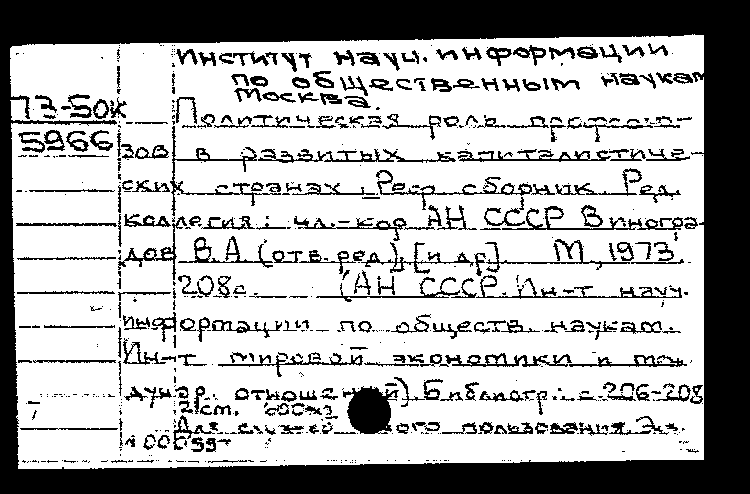 Институт науч. информации
по общественным наукам
Москва.
П3-50к
Политическая роль профсою-
5966
зов в развитых капиталистиче-
ских странах. Реф. сборник. Ред.
коллегия: чл.-кор АН СССР Виногра-
дов В.А. (отв. ред.), [и др]. М., 1973.
208с. (АН СССР. Ин-т науч.
информации по обществ. наукам.
Ин-т мировой экономики и меж
дунар. отношений) Библиогр.: с 206-208
21см. 600экз
Для служеб ного пользования. Экз.